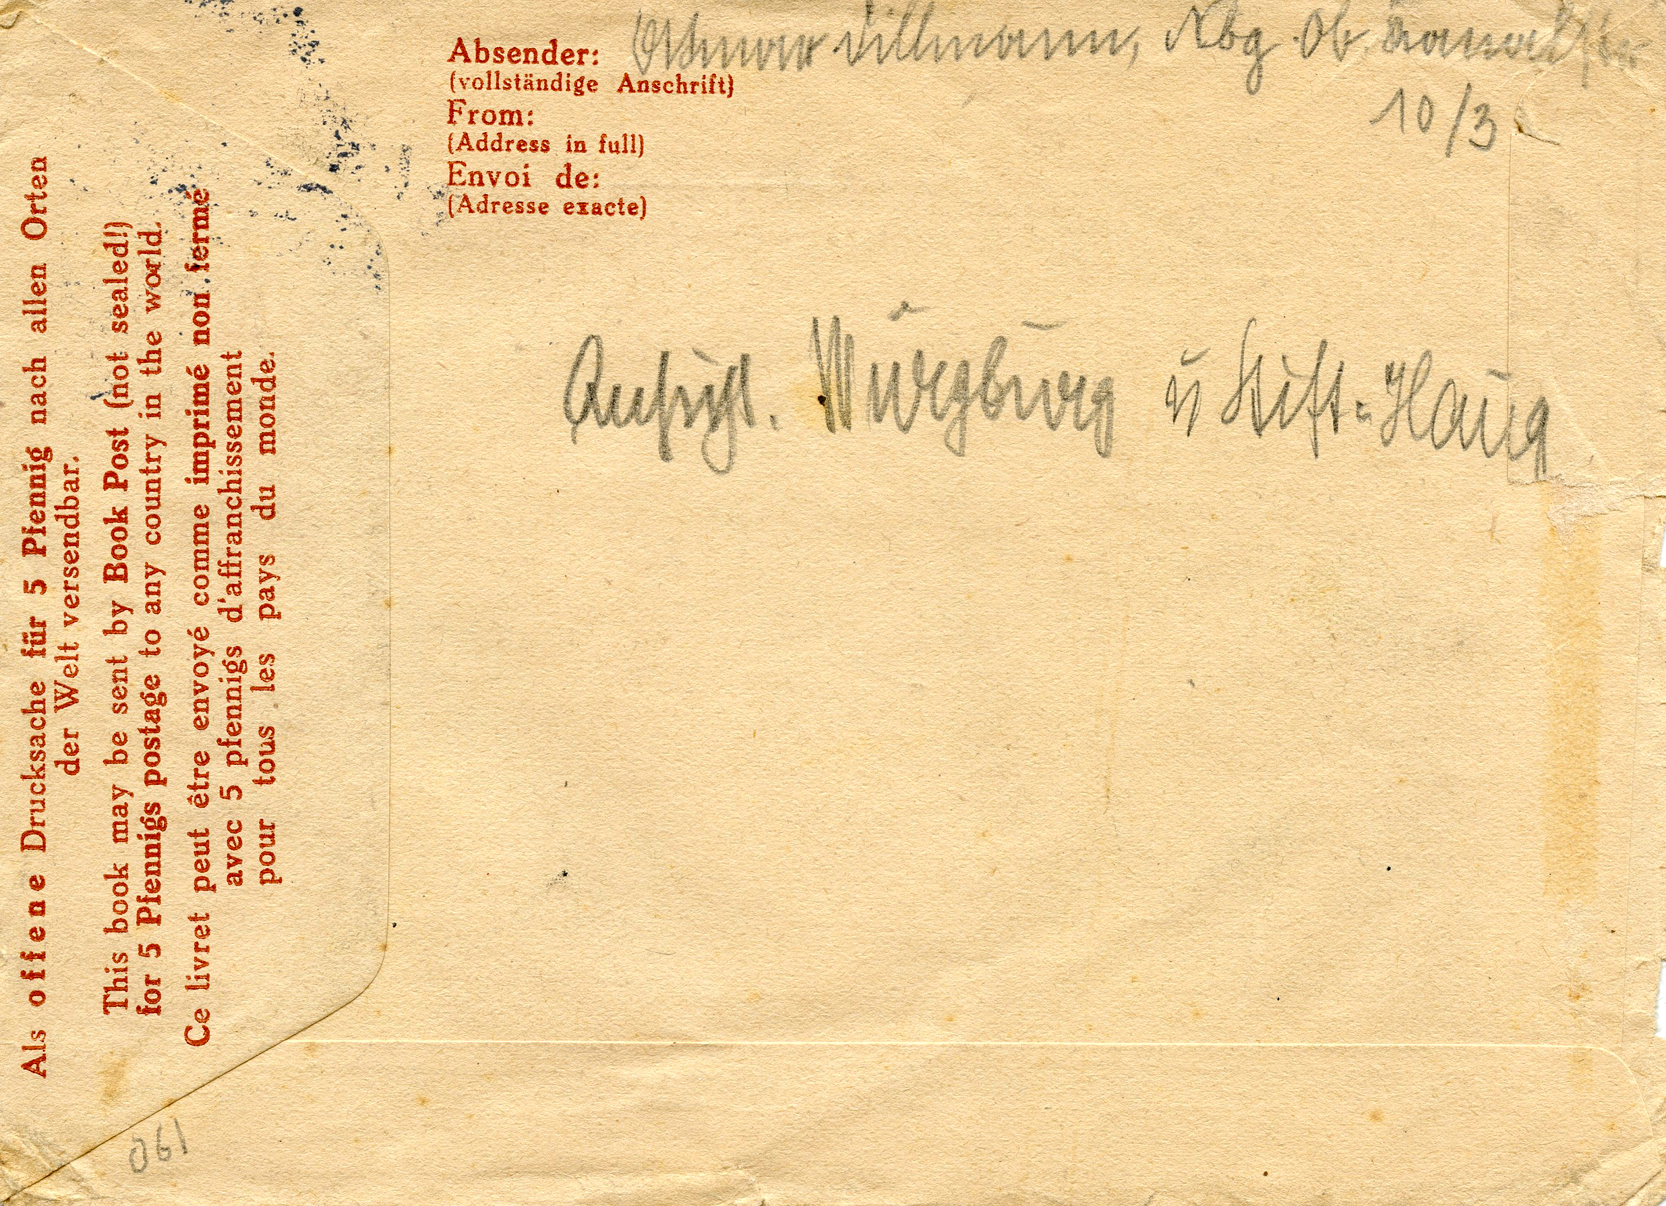 Absender: Othmar Dillmann, Nbg. Ob. Kanalstr.
(vollständige Anschrift)
10/3
From:
(Address in full)
Envoi de:
(Adresse exacte)
Als offene Drucksache für 5 Pfennig nach allen Orten
der Welt versendbar.
This book may be sent by Book Post (not sealed!)
for 5 Pfennigs postage to any country in the world.
Ce livret peut être envoyé comme imprimé non fermé
avec 5 pfennigs d'affranchissement
pour tous les pays du monde.
Ansicht. Würzburg ü Stift-Haug
190